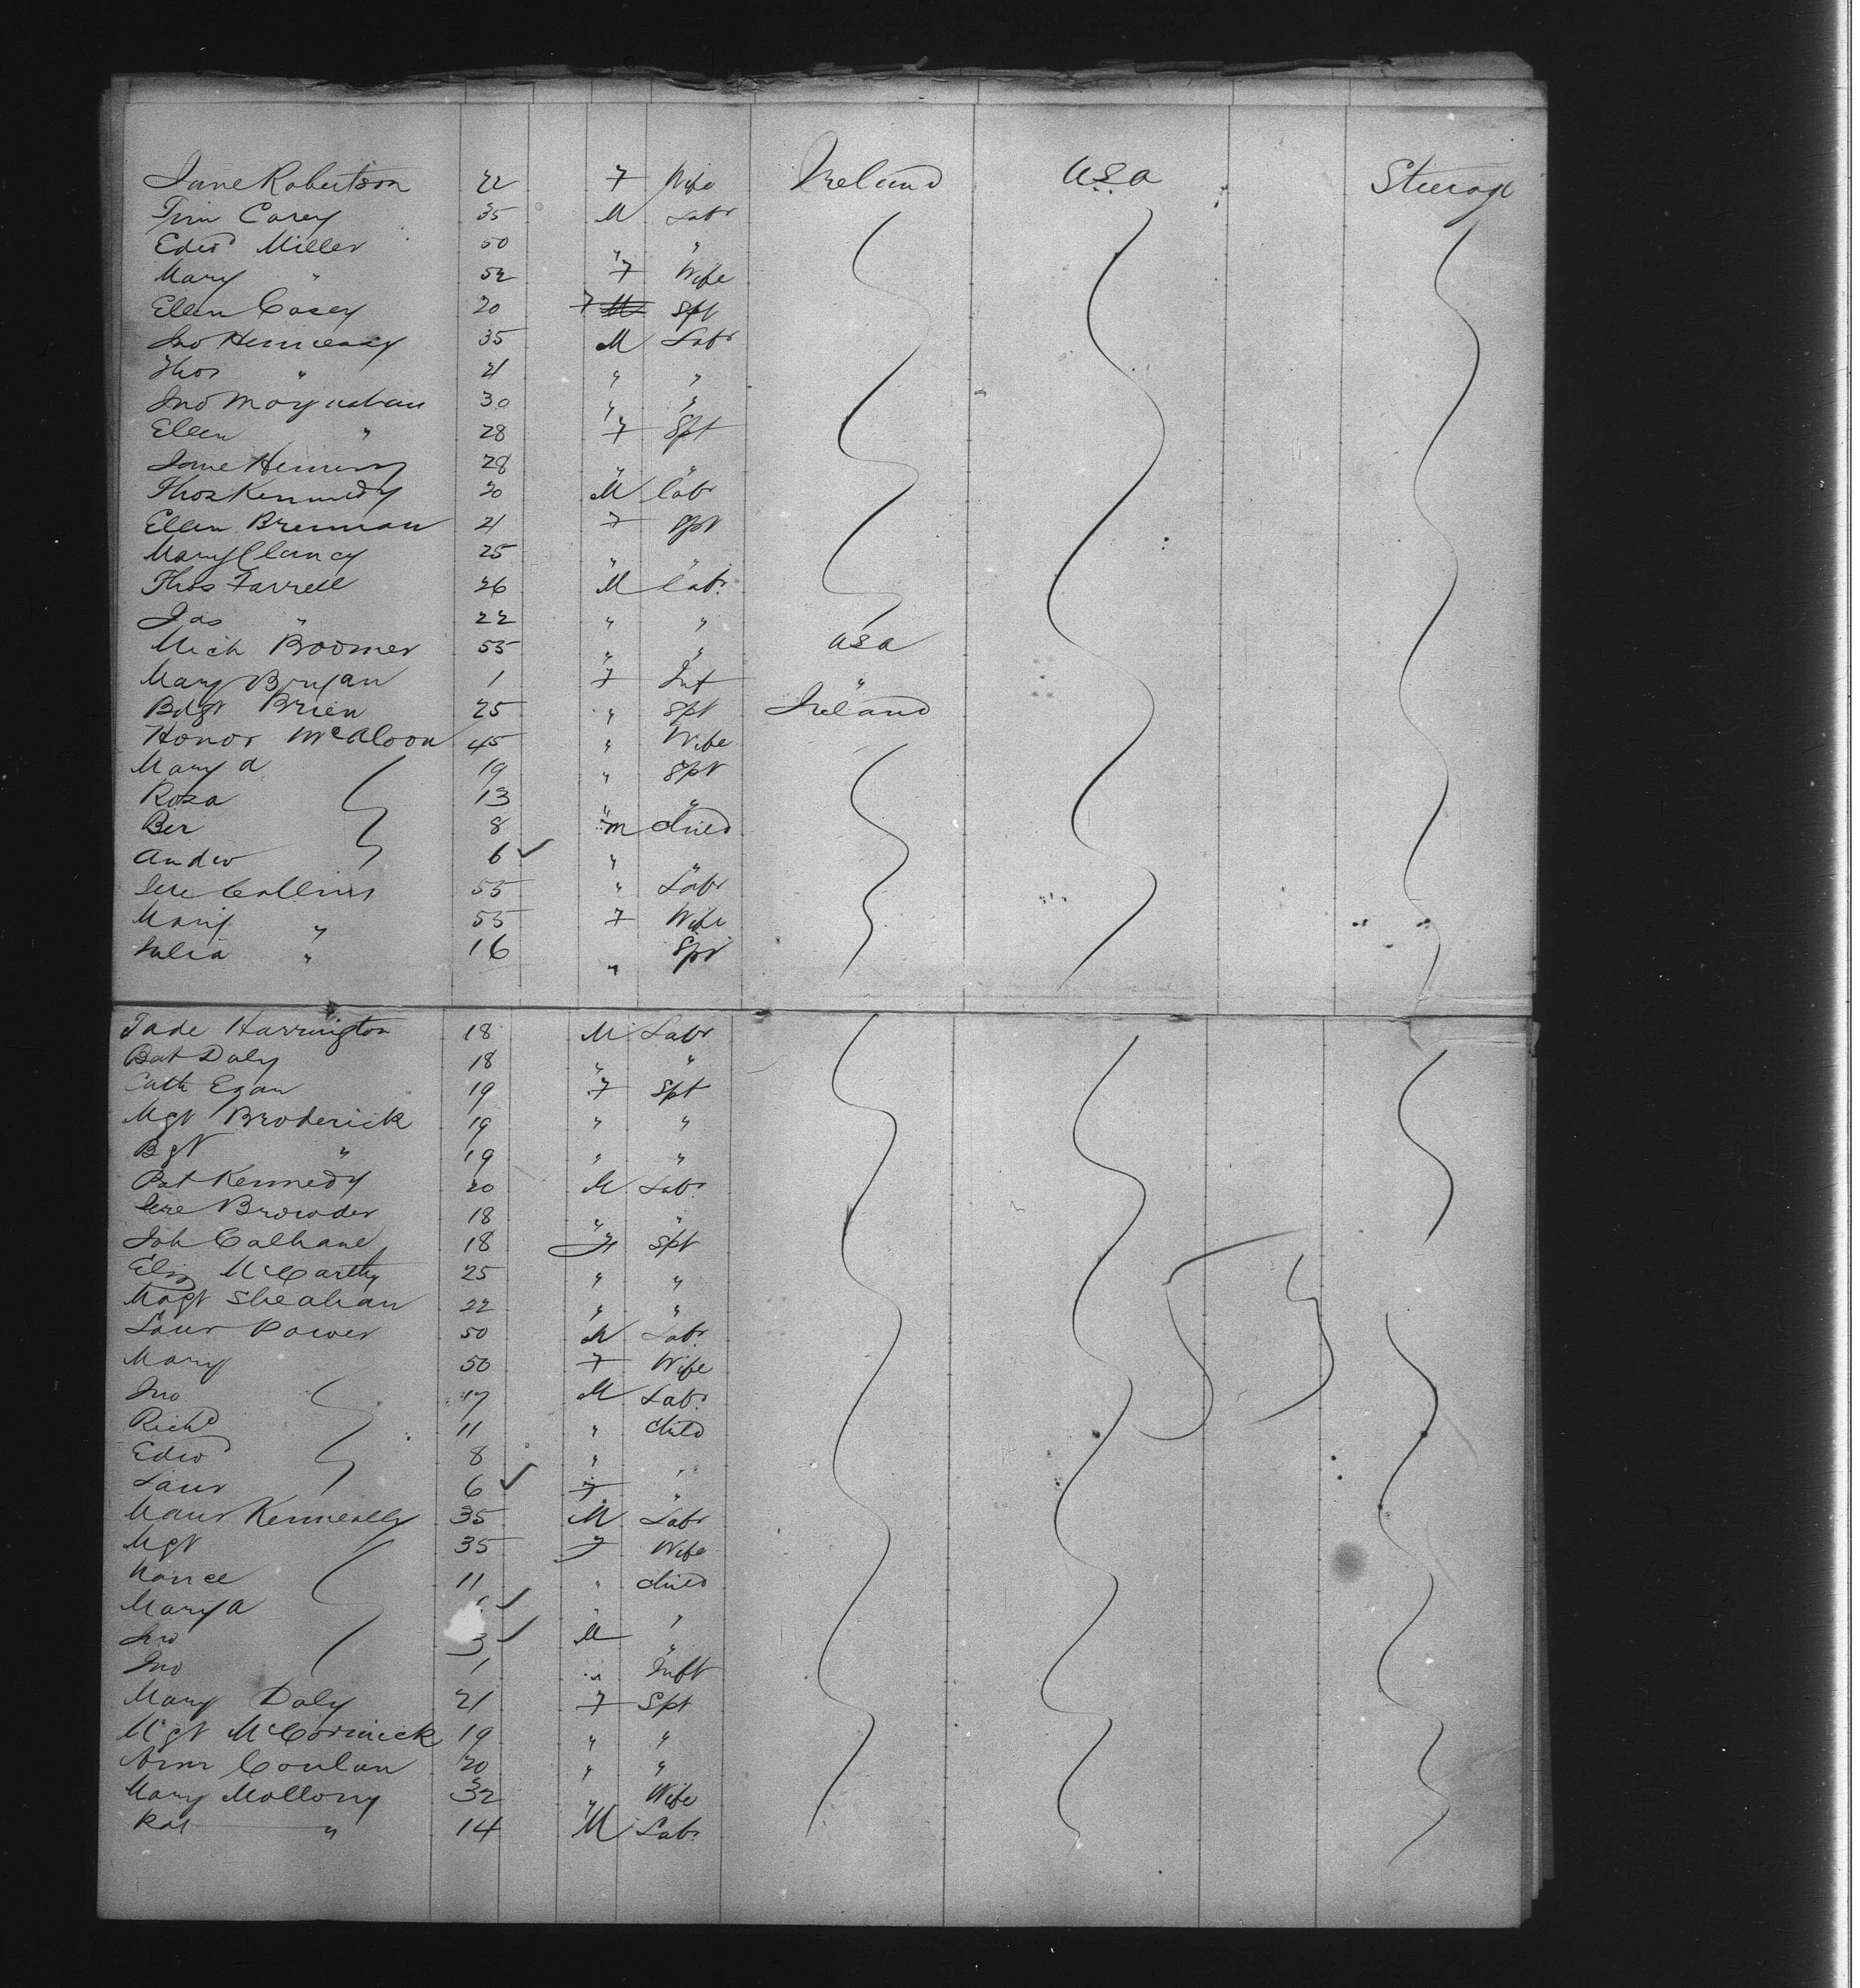 Jane Robertson 22 F Wife Ireland USA Steerage
Tim Carey 35 M Labr
Edwd Miller 50 " "
Mary " 52 F Wife
Ellen Casey 20 F Spt
Jno Hennessy 35 M Labr
Thos " 21 " "
Jno Moynahan 30 " "
Ellen " 28 F Spt
Jane Hennessy 28 " "
Thos Kennedy 20 M Labr
Ellen Brennan 21 F Spt
Mary Clancy 25 " "
Thos Farrell 26 M Labr
Jas " 22 " "
Mich Boomer 55 " " USA
Mary Bryan 1 F Inf "
Bdgt Brien 25 " Spt Ireland
Honor McAloon 45 " Wife
Mary A 19 " Spt
Rosa 13 " "
Ber 8 M child
Andw 6 " "
Jere Collins 55 " Labr
Mary " 55 F Wife
Julia " 16 " Spt
Tade Harrington 18 M Labr
Bat Daly 18 " "
Cath Egan 19 F Spt
Mgt Broderick 19 " "
Bgt " 19 " "
Pat Kennedy 20 M Labr
Jere Browder 18 " "
Joh Calhane 18 F Spt
Eliz McCarthy 25 " "
Magt Sheahan 22 " "
Laur Power 50 M Labr
Mary 50 F Wife
Jno 17 M Labr
Richd 11 " child
Edwd 8 " "
Laur 6 F "
Maur Kenneally 35 M Labr
Mgt 35 F Wife
Nance 11 " child
Mary A " "
3 M "
Jno 1 " Inft
Mary Daly 21 F Spt
Mgt McCormick 19 " "
Ann Conlan 20 " "
Mary Mallony 32 " Wife
Pat " 14 M Labr